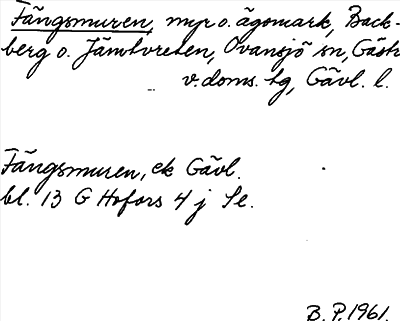 Fängsmuren, myr o. ägomark, Back-
berg o. Jämtvreten, Ovansjö sn, Gästr.
v. doms. tg, Gävl. l.
Fängsmuren, ek Gävl.
bl. 13 G Hofors 4 j Se.
B. P. 1961.